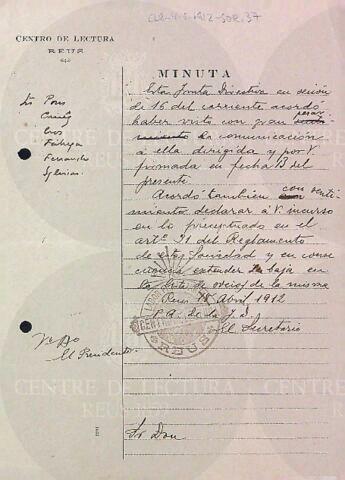 CENTRO DE LECTURA
REUS
MINUTA
Sr. Pons
Fàbregas
Fernandez
Iglesias
Esta Junta Directiva en sesión
de 16 del corriente acordó
haber visto con gran pesar
la comunicación
á ella dirigida y por V.
firmada en fecha 13 del
presente.
Acordó también con senti-
miento declarar á V. incurso
en lo preceptuado en el
artº 21 del Reglamento
de esta Sociedad y en conse
cuencia extender la baja en
la lista de socios de la misma
Reus Abril 1912
P. A. de la J. D.
El Secretario
Vº Bº
El Presidente
Sr Don
CENTRE DE LECTURA
REUS